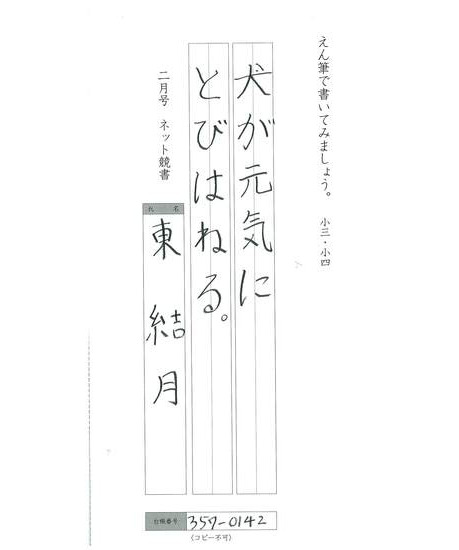 えん筆で書いてみましょう。 小三・小四
犬が元気に
とびはねる。
二月号 ネット競書
氏 名
東 結月
台帳番号 357-0142
(コピー不可)